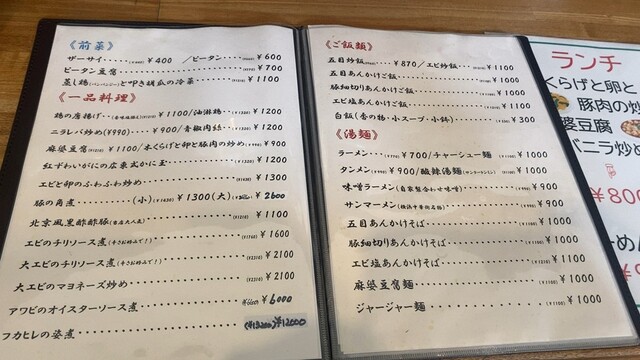 《前菜》
ザーサイ ¥400 / ピータン ¥600
ピータン豆腐 ¥700
蒸し鶏と叩き胡瓜の冷菜 ¥1100
《一品料理》
鶏の唐揚げ ¥1100/油淋鶏 ¥1200
ニラレバ炒め(¥990) ¥900/青椒肉絲 ¥1200
麻婆豆腐 ¥1100/木くらげと卵と豚肉の炒め ¥900
紅ずわいがにの広東式かに玉 ¥1200
エビと卵のふわふわ炒め ¥1300
豚の角煮 (小) ¥1300(大) ¥2600
北京風黒酢酢豚 ¥1100
エビのチリソース煮(辛さお好みで!) ¥1600
大エビのチリソース煮(辛さお好みで!) ¥2100
大エビのマヨネーズ炒め ¥2100
アワビのオイスターソース煮 ¥6000
フカヒレの姿煮 (¥13200) ¥12000
《ご飯類》
五目炒飯 ¥870/エビ炒飯 ¥1100
五目あんかけご飯 ¥1100
豚細切りあんかけご飯 ¥1100
エビ塩あんかけご飯 ¥1100
白飯(香の物・小スープ・小鉢) ¥300
《湯麺》
ラーメン ¥700/チャーシュー麺 ¥1000
タンメン ¥900/酸辣湯麺 ¥1000
味噌ラーメン(自家製合わせ味噌) ¥900
サンマーメン ¥900
五目あんかけそば ¥1000
豚細切りあんかけそば ¥1000
エビ塩あんかけそば ¥1000
麻婆豆腐麺 ¥1000
ジャージャー麺 ¥1000
ランチ
くらげと卵と
豚肉の炒
婆豆腐
バニラ炒め
¥800
ーめん